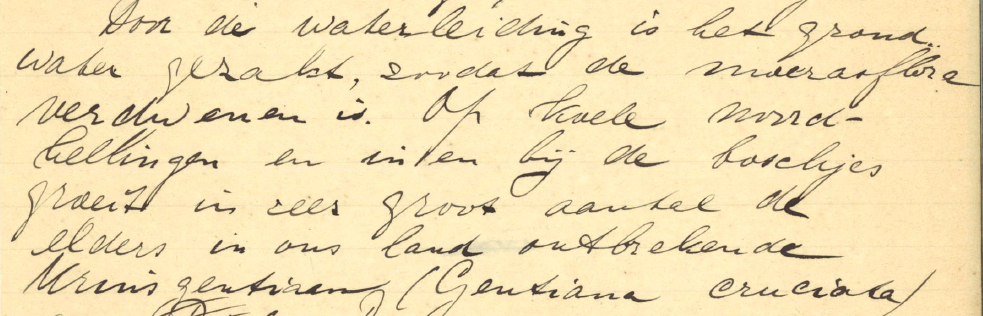 Door de waterleiding is het grond-
water gezakt, zoodat de moerasflora
verdwenen is. Op koele noord-
hellingen en in en bij de boschjes
groeit in zeer groot aantal de
elders in ons land ontbrekende
Kruisgentiaan (Gentiana cruciata)